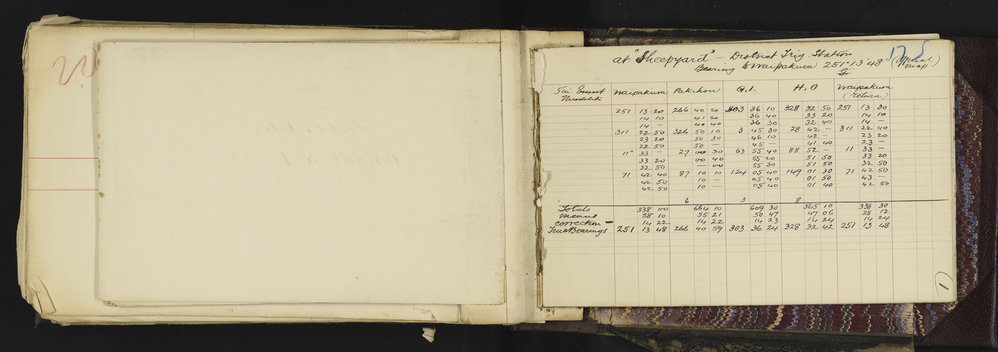 at "Sheepyard" — District Trig. Station
Bearing to Waipakura 251° 13' 48" (Official Map)
5 in Theodolite Waipakura Pakihou G.I. H.A Waipakura (return)
251 13 20 266 40 20 303 36 10 328 32 50 251 13 30
14 10 41 20 36 40 33 20 14 10
14 — 40 40 36 30 32 40 14 —
311 22 50 326 50 10 3 45 30 28 42 — 311 22 40
23 20 50 30 46 10 42 — 23 20
22 50 50 — 45 — 41 40 23 —
11 33 — 27 00 30 63 55 40 88 52 — 11 33 —
33 20 00 40 55 20 51 50 33 20
32 50 — 00 55 30 51 50 32 50
71 42 40 87 10 10 124 05 40 149 01 30 71 42 50
42 50 10 — 05 40 01 50 43 —
42 50 10 — 05 40 01 40 42 50
6 3 8
Totals 338 00 664 10 609 30 565 10 338 30
Means 28 10 55 21 50 47 47 06 28 12
Correction — 14 22 14 22 14 23 14 24 14 24
True Bearings 251 13 48 266 40 59 303 36 24 328 32 42 251 13 48
1